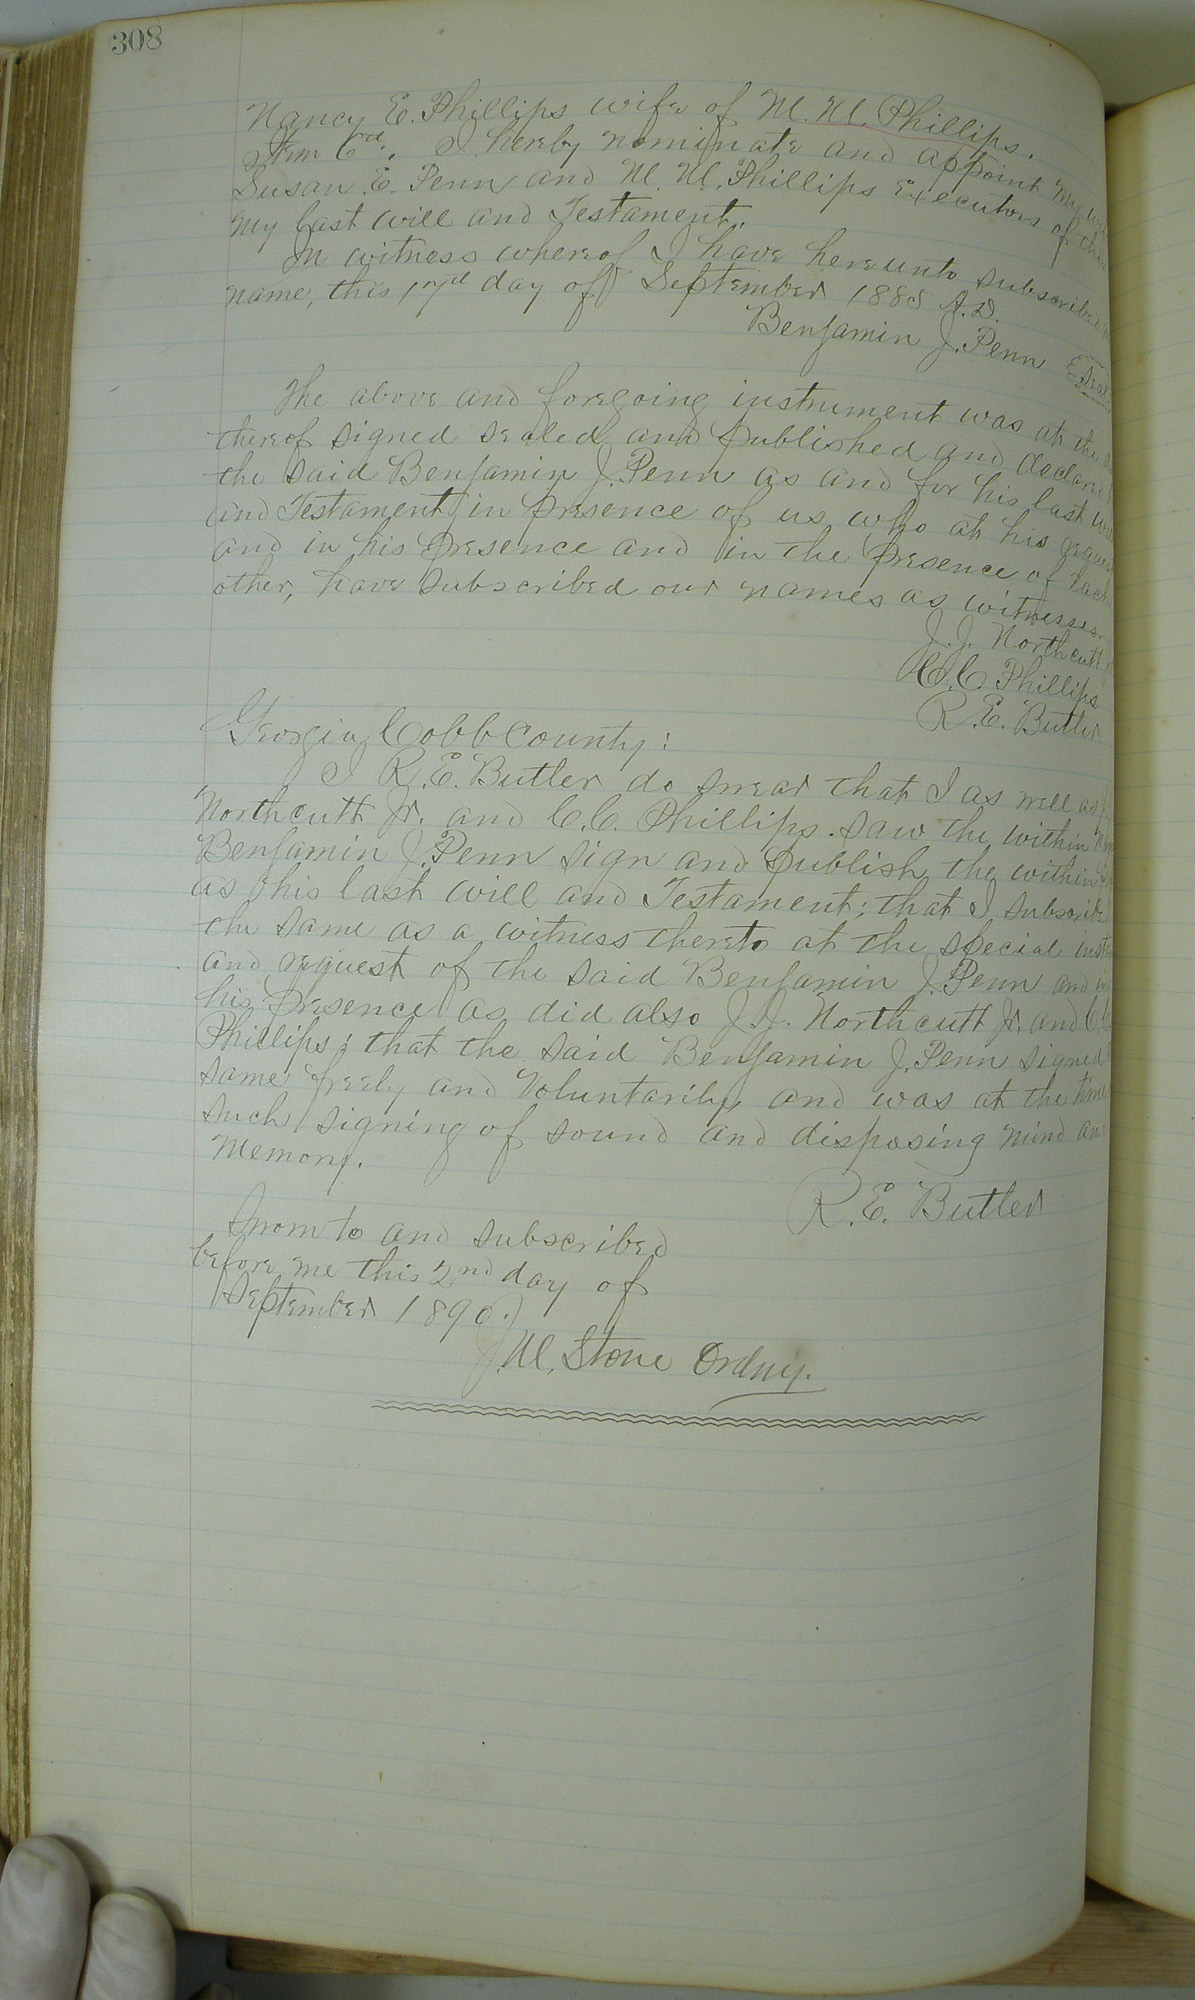 308
Nancy E. Phillips wife of M. M. Phillips.
Item 6th. I hereby nominate and appoint my
Susan E. Penn and M. M. Phillips Executors of this
My last will and Testament.
In witness whereof I have hereunto subscribed
name, this day of September A.D.
Benjamin J. Penn
The above and foregoing instrument was at the
thereof signed sealed and published and declared
the said Benjamin J. Penn as and for his last will
and Testament in presence of us who at his request
and in his presence and in the presence of each
other, have subscribed our names as witnesses.
J. J. Northcutt
C. C. Phillips
R. E. Butler
Georgia, Cobb County:
I R. E. Butler do swear that I as well as
Northcutt Jr. and C. C. Phillips. saw the within
Benjamin J. Penn sign and publish the within
as his last will and Testament; that I subscribed
the same as a witness thereto at the special
and request of the said Benjamin J. Penn and in
his presence as did also J. J. Northcutt Jr. and C. C.
Phillips; that the said Benjamin J. Penn signed
same freely and Voluntarily, and was at the time
such signing of sound and disposing mind and
Memory.
R. E. Butler
Sworn to and subscribed
before me this 2nd day of
September 1890.
J. M. Stone Ordny.